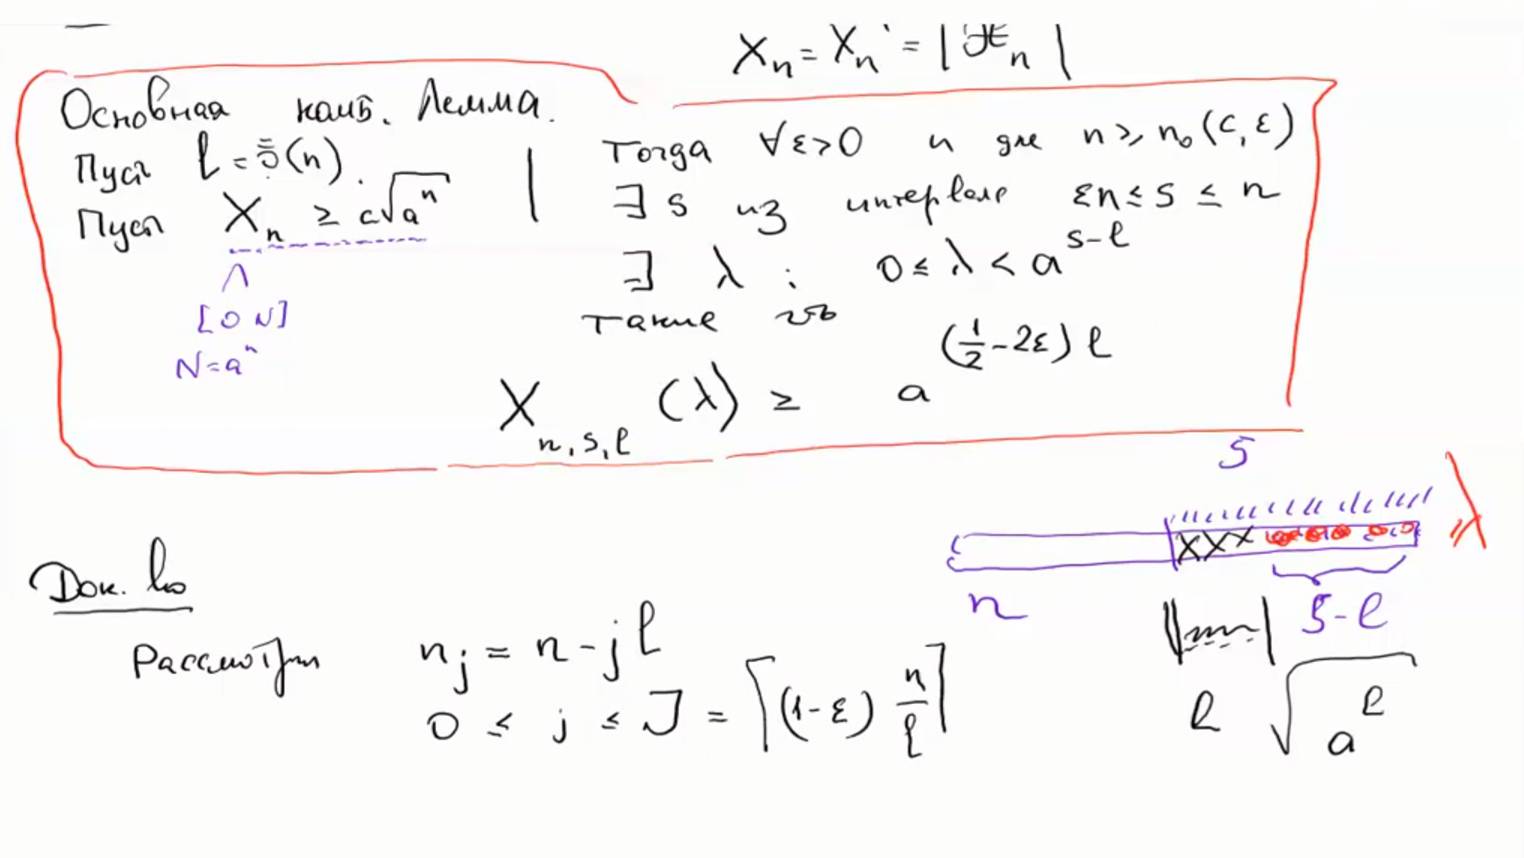 Xₙ = Xₙ' = |ℋₙ|
Основная комб. Лемма.
Пусть l = ō(n).
Пусть Xₙ ≥ c√(aⁿ)
Λ
[0 N]
N = aⁿ
Тогда ∀ε>0 и для n ≥ n₀(c,ε)
∃ s из интервала εn ≤ s ≤ n
∃ λ : 0 ≤ λ < a^(s-l)
такие что
X_{n,s,l} (λ) ≥ a^((1/2 - 2ε) l)
s
λ
xxx
n
s-l
l √(a^l)
Док. во
Рассмотрим n_j = n - jl
0 ≤ j ≤ J = ⌈(1-ε) n/l⌉